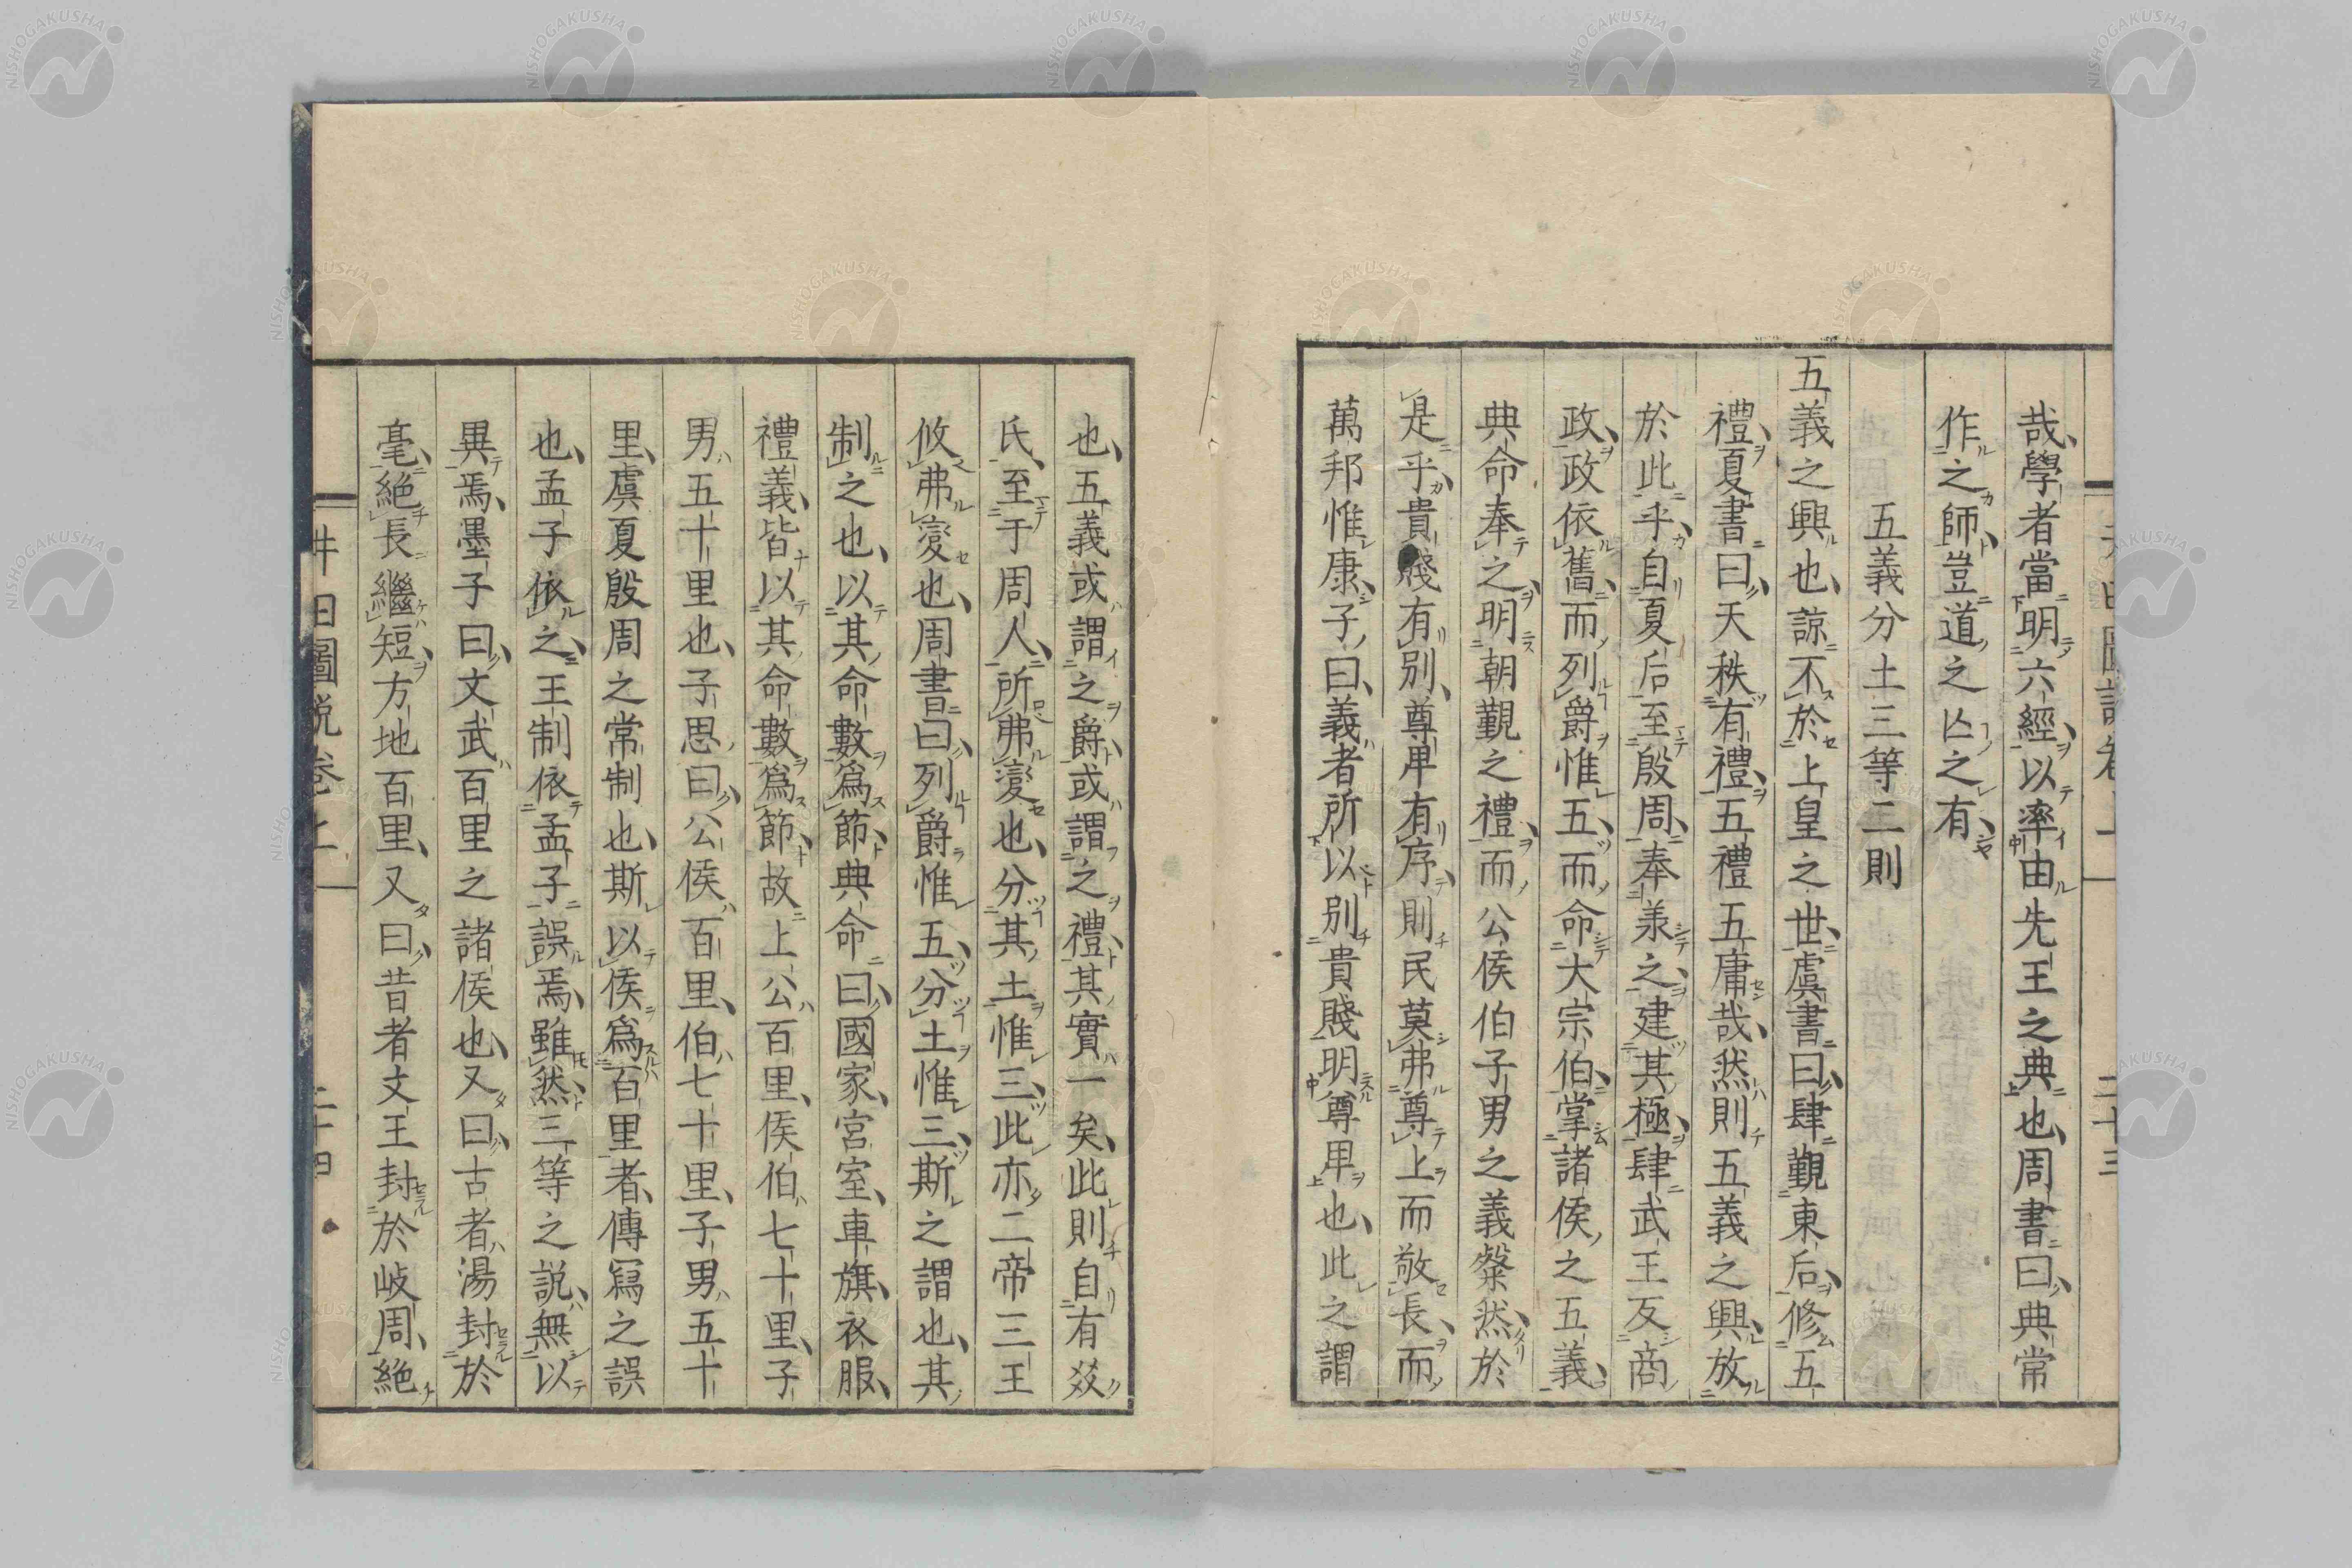 哉學者當明六經以率由先王之典也周書曰典常
作之師豈道之亾之有
五義分土三等二則
五義之興也諒不於上皇之世虞書曰肆覲東后修五
禮夏書曰天秩有禮五禮五庸哉然則五義之興放
於此乎自夏后至殷周奉羕之建其極肆武王反商
政政依舊而列爵惟五而命大宗伯掌諸侯之五義
典命奉之明朝覲之禮而公侯伯子男之義粲然於
是乎貴賤有別尊卑有序則民莫弗尊上而敬長而
萬邦惟康子曰義者所以別貴賤明尊卑也此之謂
也五義或謂之爵或謂之禮其實一矣此則自有姣
氏至于周人所弗變也分其土惟三此亦二帝三王
攸弗變也周書曰列爵惟五分土惟三斯之謂也其
制之也以其命數爲節典命曰國家宮室車旗衣服
禮義皆以其命數爲節故上公百里侯伯七十里子
男五十里也子思曰公侯百里伯七十里子男五十
里虞夏殷周之常制也斯以侯爲百里者傳寫之誤
也孟子依之王制依孟子誤焉雖然三等之説無以
異焉墨子曰文武百里之諸侯也又曰古者湯封於
毫絶長繼短方地百里又曰昔者文王封於岐周絶
井田圖説卷上
二十四
二十三